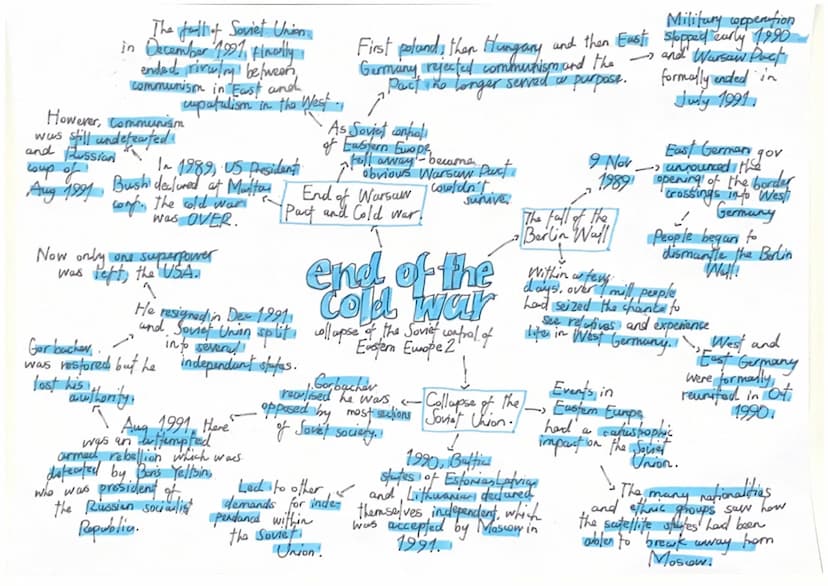 end of the
cold war
collapse of the Soviet control of
Eastern Europe 2
End of Warsaw
Pact and Cold war.
As Soviet control
of Eastern Europe
fell away - became
obvious Warsaw Pact
couldn't
survive.
First poland, then Hungary and then East
Germany rejected communism and the
Pact no longer served a purpose.
Military cooperation
stopped early 1990
and Warsaw Pact
formally ended in
July 1991.
The fall of Soviet Union
in December 1991, finally
ended rivalry between
communism in East and
capatalism in the West.
In 1989, US President
Bush declared at Malta
conf. the cold war
was OVER.
However, communism
was still undefeated
and Russian
coup of
Aug 1991
The fall of the
Berlin Wall
9 Nov
1989
East German gov
announced the
opening of the border
crossings into West
Germany
People began to
dismantle the Berlin
Wall!
Within a few
days, over 1 mill people
had seized the chance to
see relatives and experience
life in West Germany.
West and
East Germany
were formally
reunited in Oct
1990.
Collapse of the
Soviet Union.
Events in
Eastern Europe
had a catastrophic
impact on the Soviet
Union.
The many nationalities
and ethnic groups saw how
the satellite states had been
able to break away from
Moscow.
1990, Baltic
states of Estonia, Latvia
and Lithuania declared
themselves independent, which
was accepted by Moscow in
1991.
Led to other
demands for inde-
pendance within
the Soviet
Union.
Gorbachev
realised he was
opposed by most sections
of Soviet society.
Aug 1991, there
was an attempted
armed rebellion which was
defeated by Boris Yeltsin,
who was president of
the Russian socialist
Republic.
Gorbachev
was restored but he
lost his
authority.
He resigned in Dec 1991
and Soviet Union split
into several
independent states.
Now only one superpower
was left, the USA.